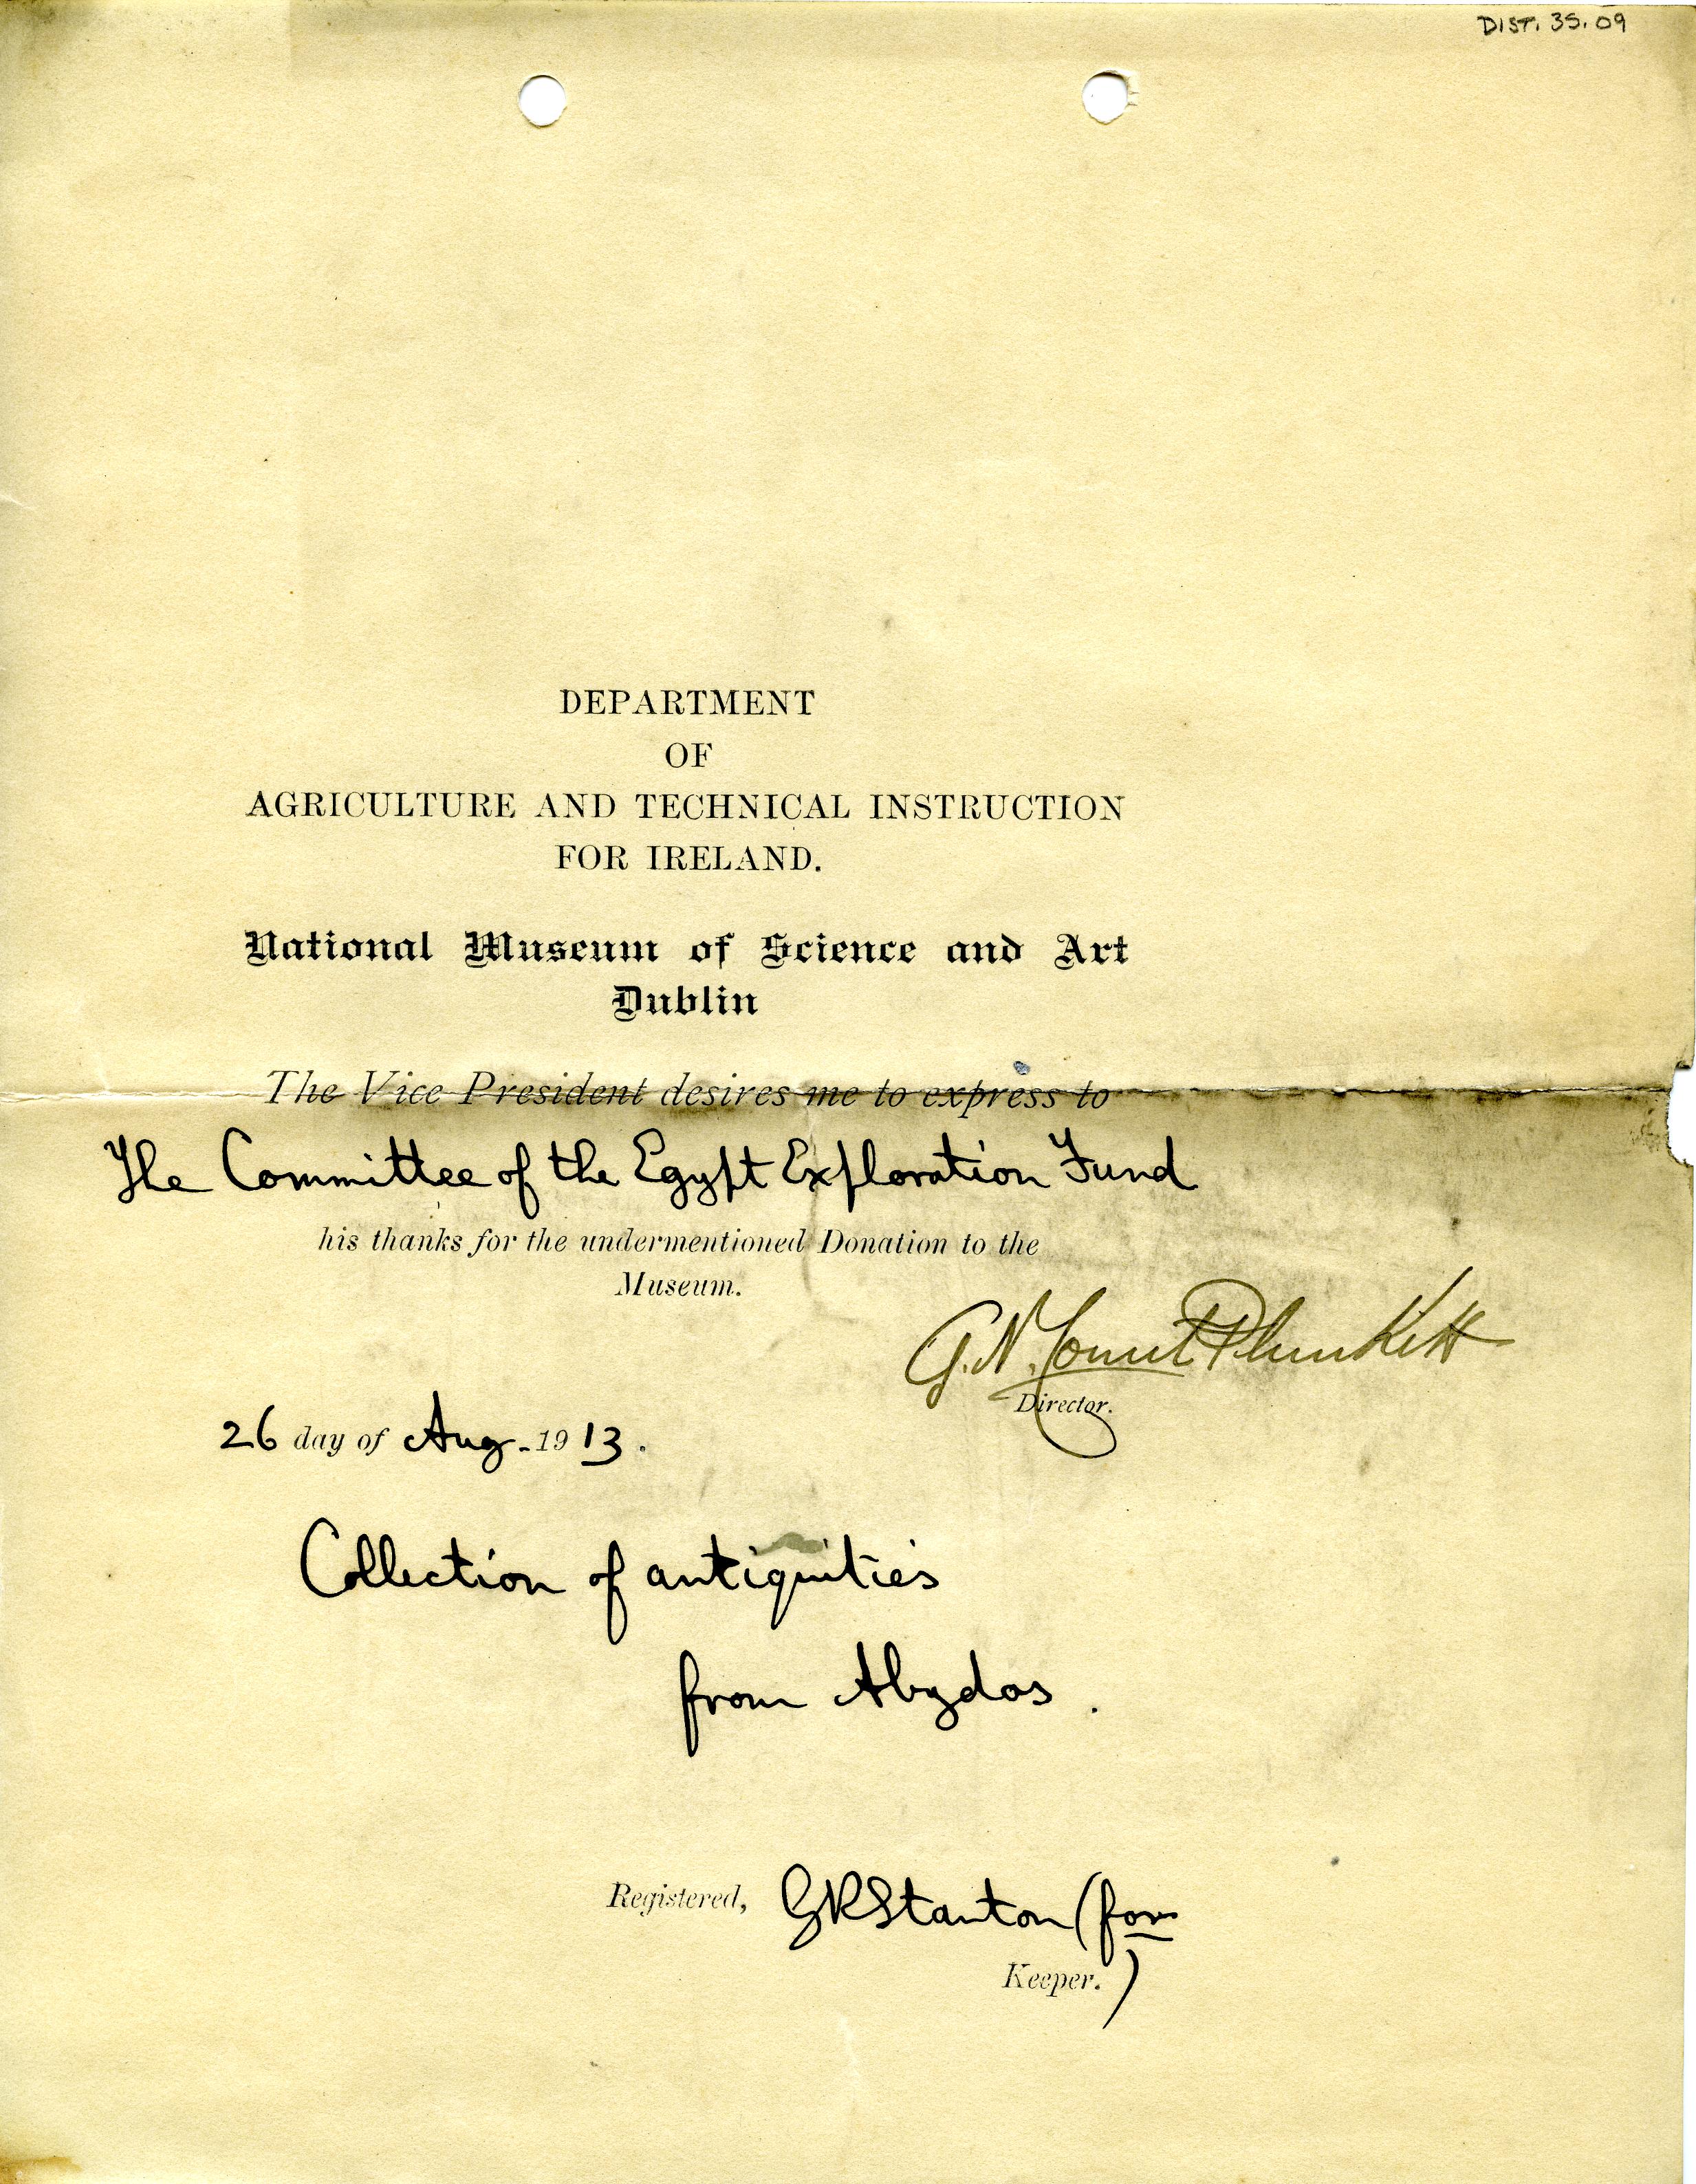 DIST. 35.09
DEPARTMENT
OF
AGRICULTURE AND TECHNICAL INSTRUCTION
FOR IRELAND.
National Museum of Science and Art
Dublin
The Vice President desires me to express to
The Committee of the Egypt Exploration Fund
his thanks for the undermentioned Donation to the
Museum.
G. N. Count Plunkett
Director.
26 day of Aug. 1913.
Collection of antiquities
from Abydos.
Registered, GRStanton (for
Keeper.)